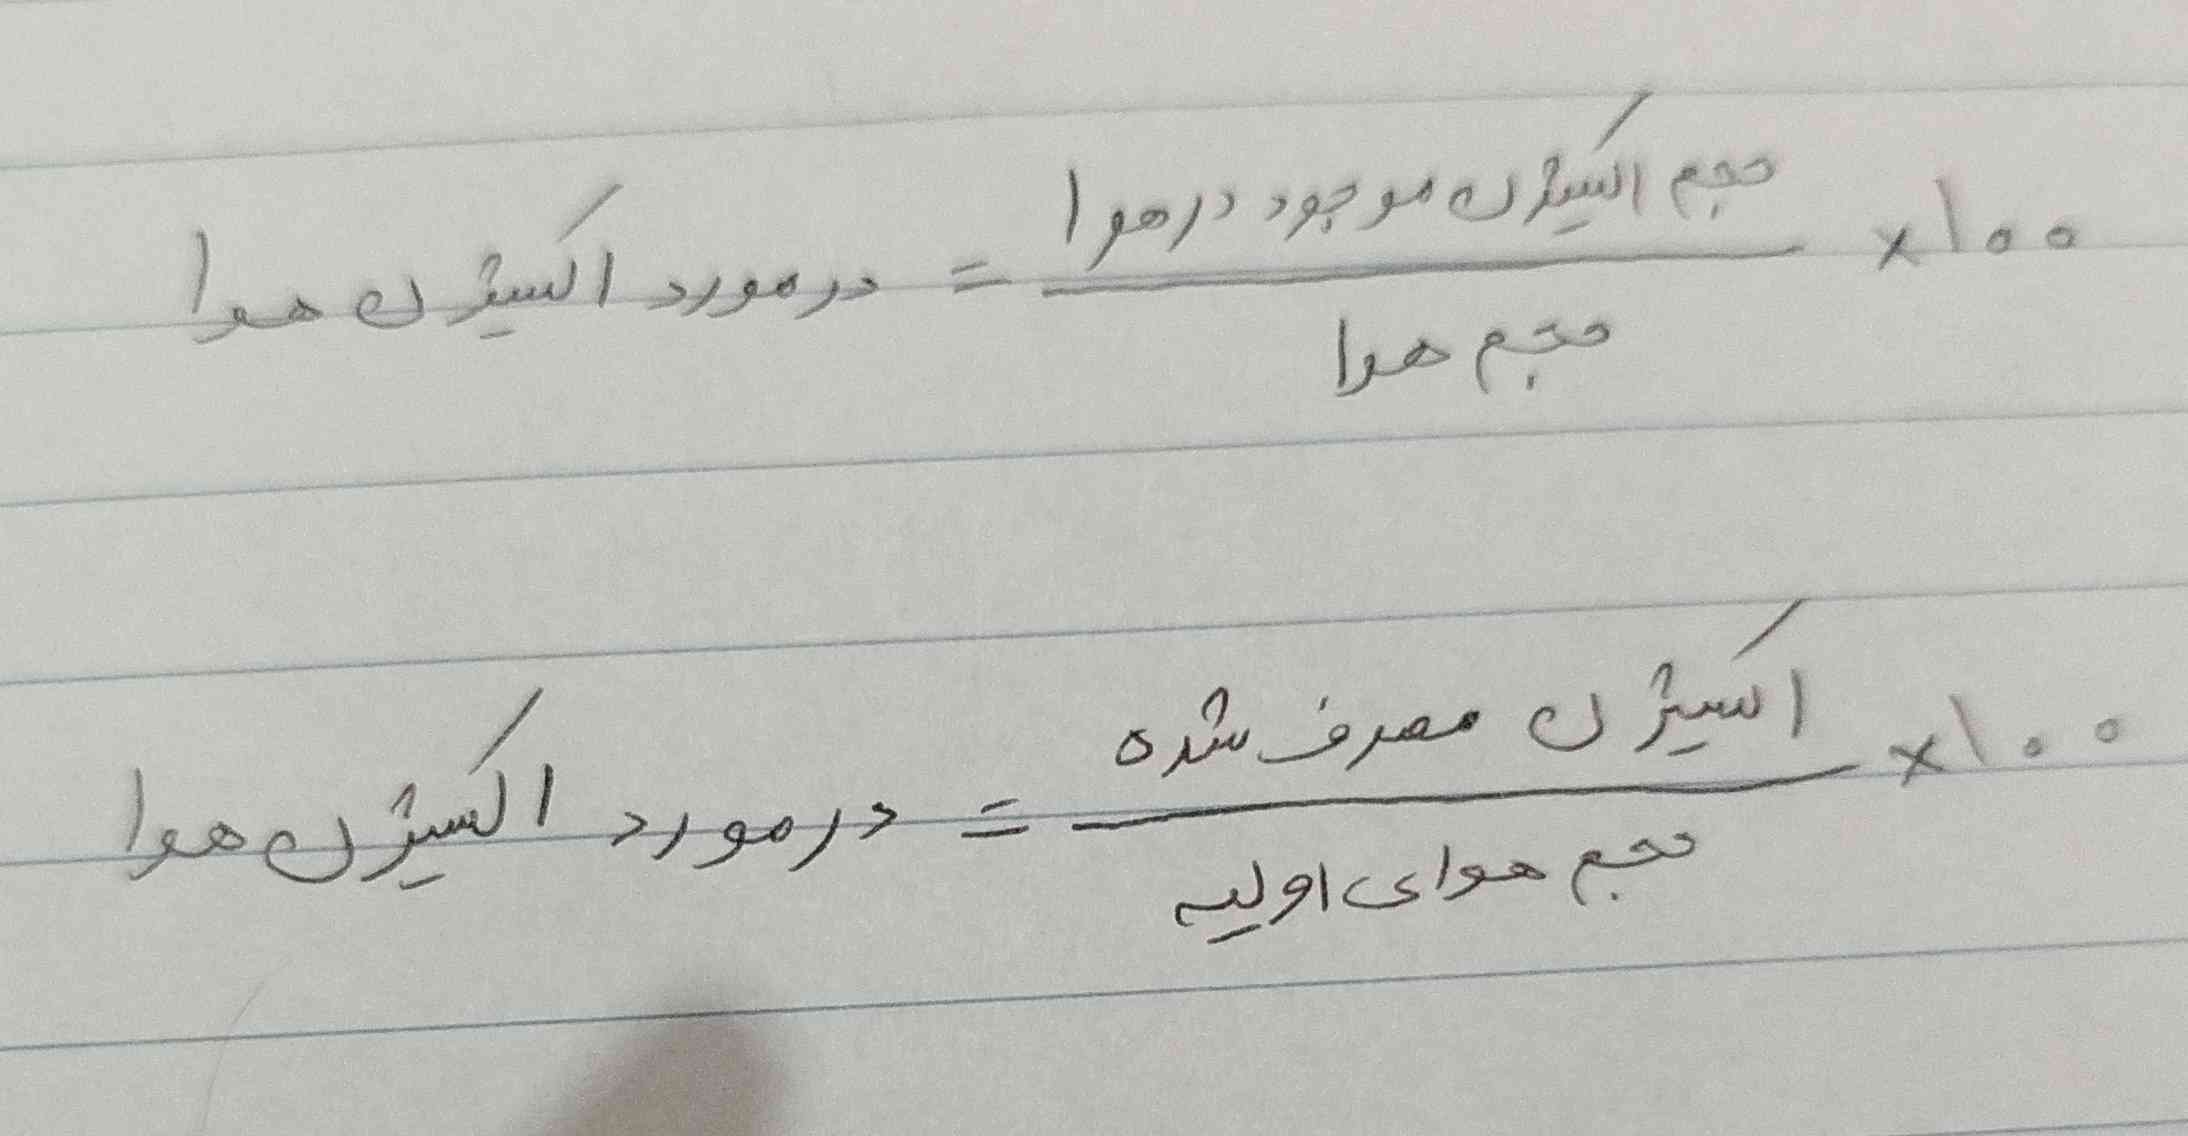 در مورد اکسیژن هوا = حجم اکسیژن موجود در هوا × ۱۰۰
حجم هوا
در مورد اکسیژن هوا = اکسیژن مصرف شده × ۱۰۰
حجم هوای اولیه